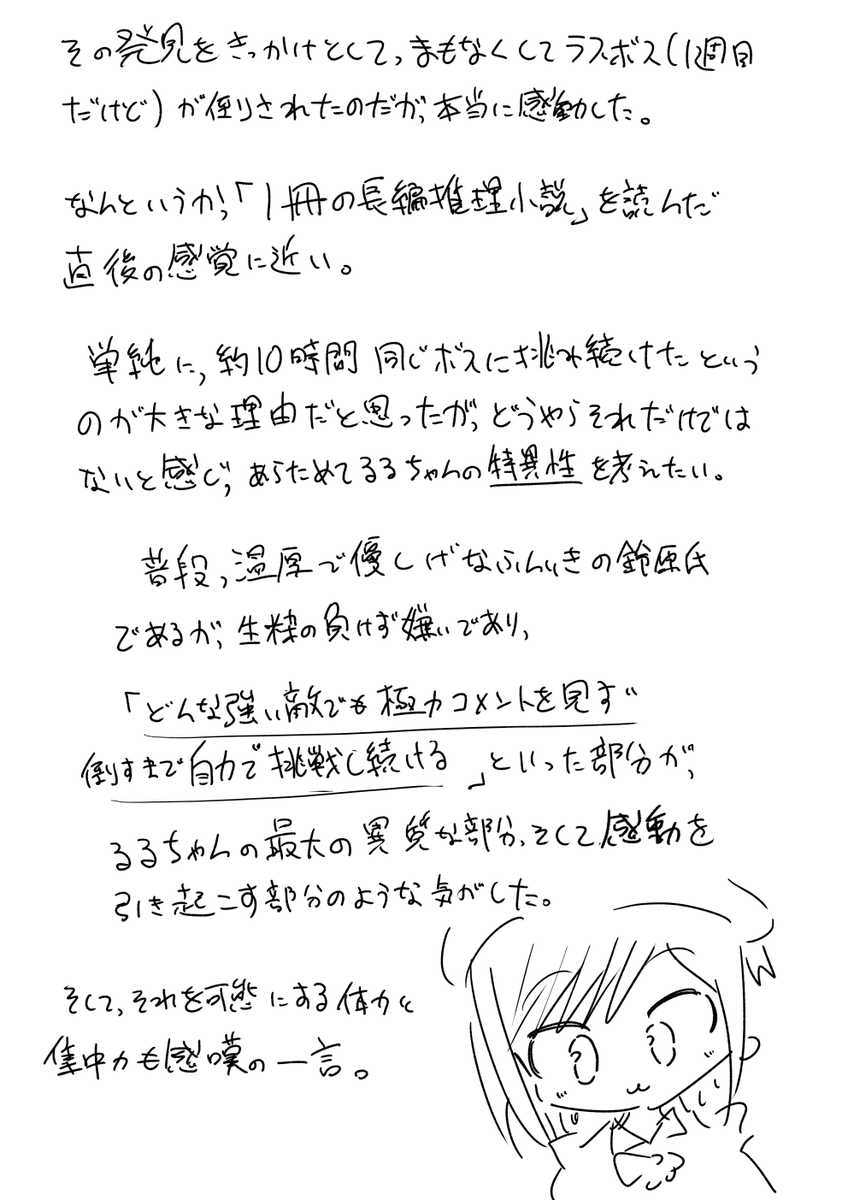 その発見をきっかけとして、まもなくしてラスボス(1週目
だけど)が倒りされたのだが、本当に感動した。
なんというか、「1冊の長編推理小説」を読んだ
直後の感覚に近い。
単純に、約10時間 同じボスに挑み続けたという
のが大きな理由だと思ったが、どうやらそれだけでは
ないと感じ、あらためてるるちゃんの特異性を考えたい。
普段、温厚で優しげなふんいきの鈴原氏
であるが、生粋の負けず嫌いであり、
「どんな強い敵でも極力コメントを見ず
倒すまで自力で挑戦し続ける」といった部分が、
るるちゃんの最大の異質な部分、そして感動を
引き起こす部分のような気がした。
そして、それを可能にする体力と
集中力も感嘆の一言。